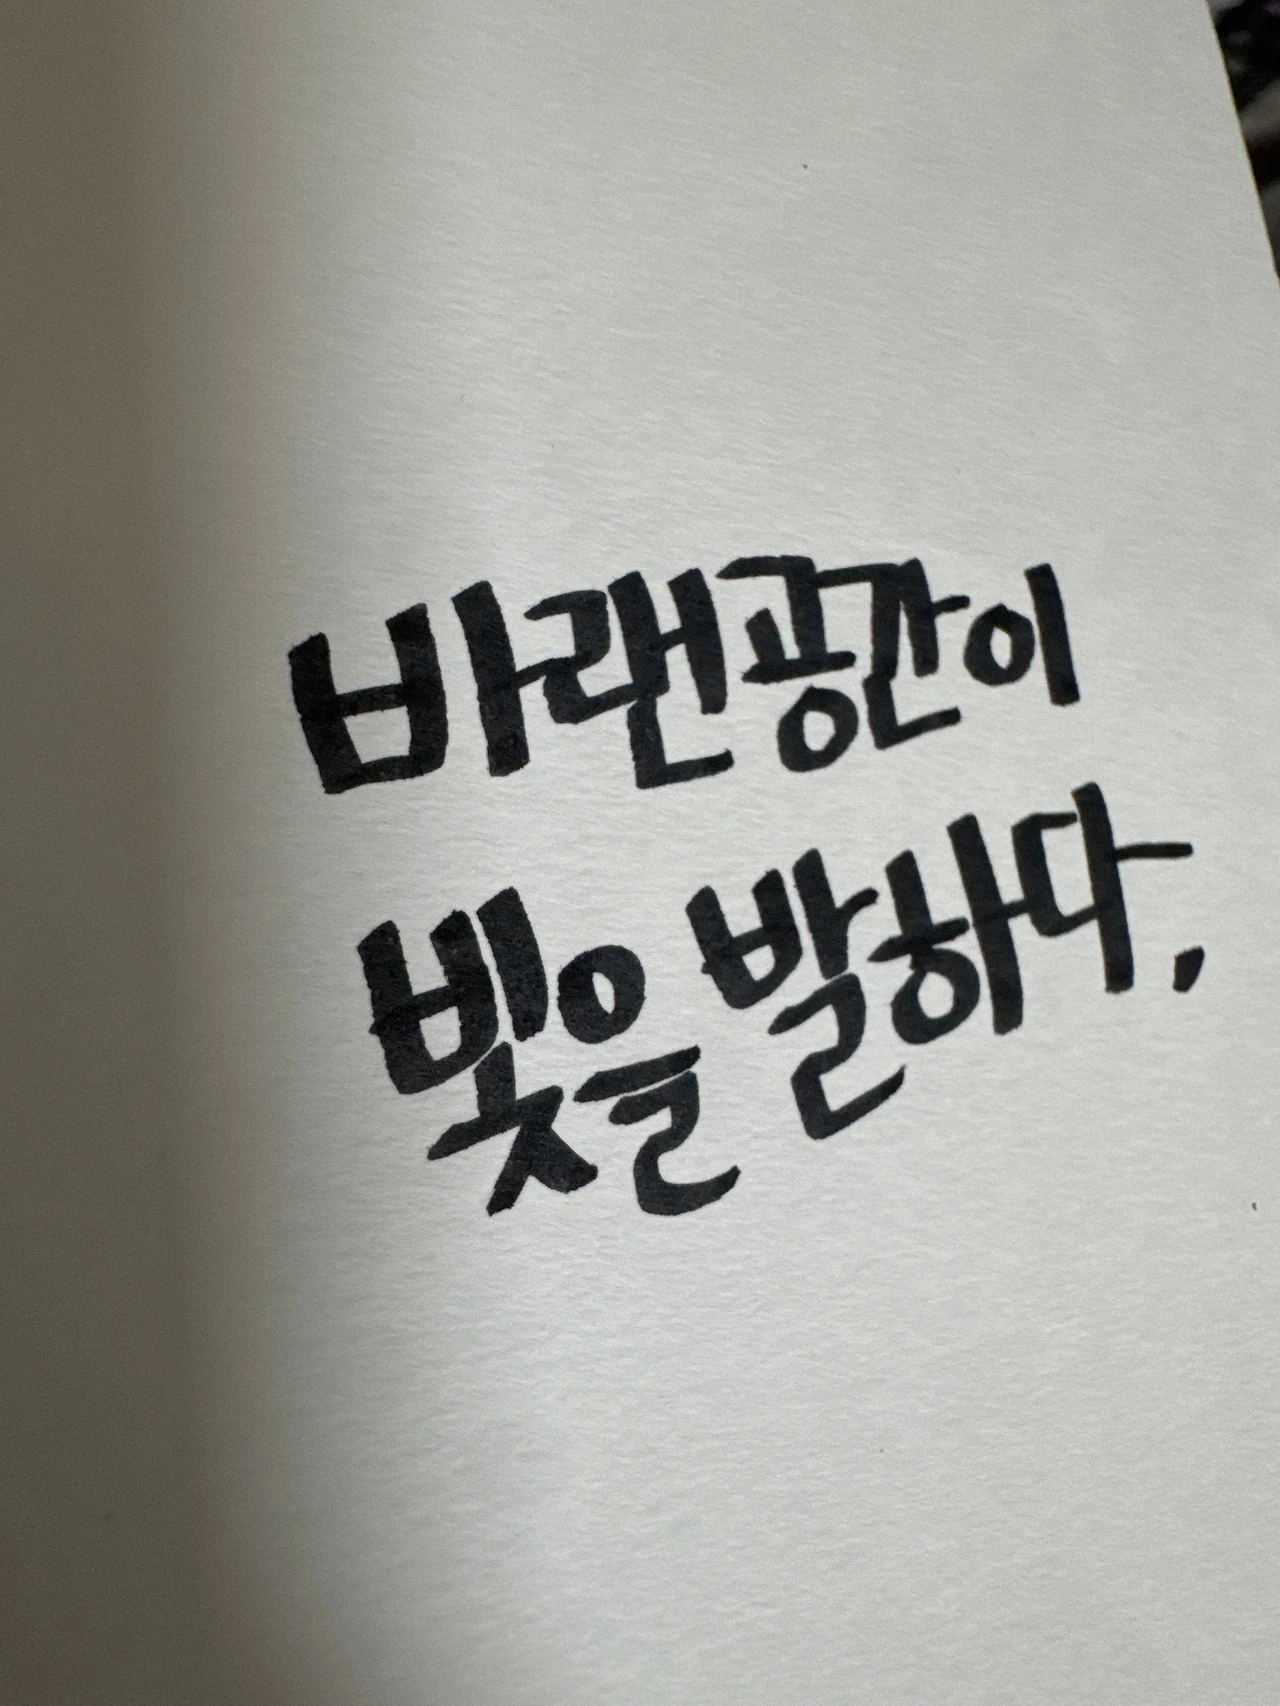 바랜 공간이
빛을 발하다.